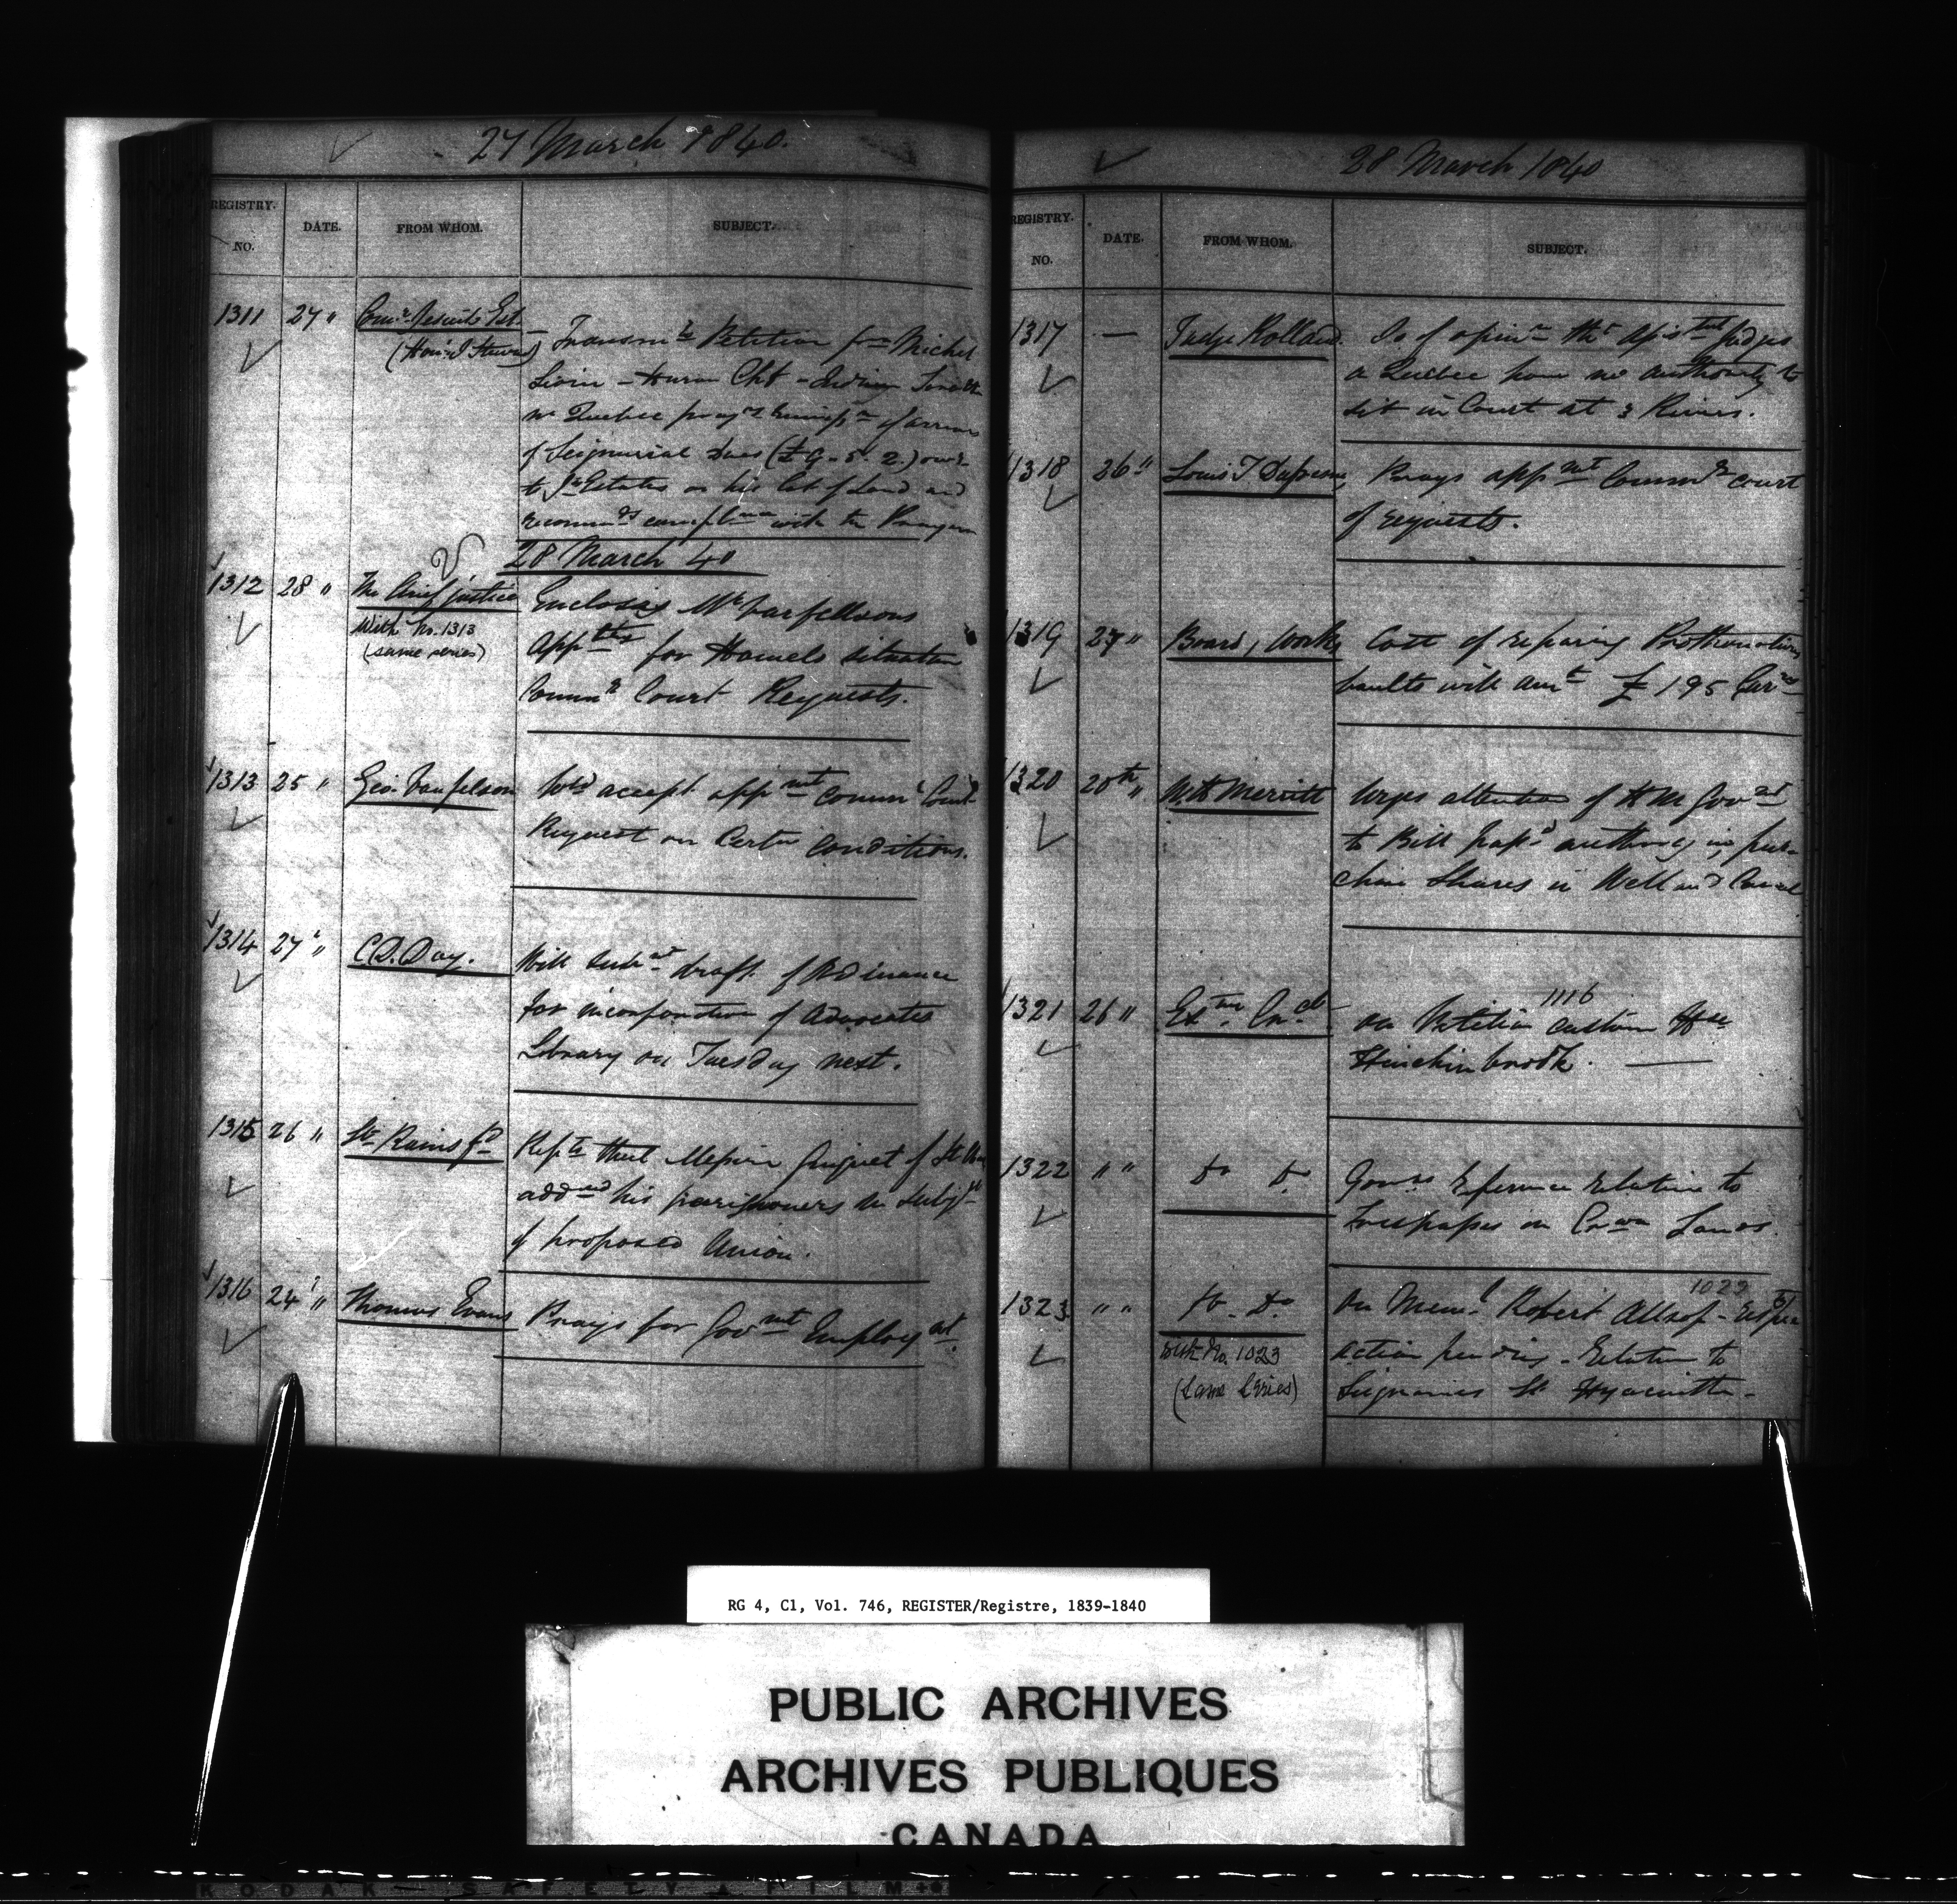 27 March 1840.
REGISTRY.
NO.
DATE.
FROM WHOM.
SUBJECT.
1311 27 " Comr. Jesuits Est.
(Hon. J. Stewart)
Transmts Petition from Michel
Sioui - Huron Chf - Indian Lorette
nr Quebec prayg remissn of arrears
of Seignurial Dues (£9-5.2.) owg
to Jts Estates on his lot of Land and
recommds compliance with the Prayer
28 March 40
1312 28 " The Chief Justice
With No. 1313
(same series)
Encloses Mr Vanfelsons
Appten for Hamels situation
Commr Court Requests.
1313 25 " Geo. Vanfelson
Wd accept appmt Commr Court
Request on Certn Conditions.
1314 27 " C.D. Day.
Will submt draft of Ordinance
for incorporation of Advocates
Library on Tuesday next.
1315 26 "
Repts that Messire Quiquet of St
addsed his parishioners on Subjt
of proposed Union.
1316 24 " Thomas Evans
Prays for Govmt Employmt.
28 March 1840
REGISTRY.
NO.
DATE.
FROM WHOM.
SUBJECT.
1317 — Judge Rolland.
Is of opinn tht Assisnt Judges
a Quebec have no authority to
sit in Court at 3 Rivers.
1318 26 " Louis T Dufresne
Prays appmt Commr Court
of requests.
1319 27 " Board, Works
Cost of repairing Prothonotarys
vaults will amt £195 Curcy
1320 20th " W.H. Merritt
Urges attention of H M Govmt
to Bill passd authorising pur-
chase Shares in Welland Canal
1321 26 " Exve. Cncl.
1116
on Petition Custom Hse
Hinchinbrook. —
1322 " " Do Do
Govrs reference relative to
Trespasses on Crown Lands.
1323 " " Do. Do
With No. 1023
(Same Series)
1023
On Meml. Robert Allsop - respg
action pending - Relative to
Seignories St. Hyacinthe -
RG 4, C1, Vol. 746, REGISTER/Registre, 1839-1840
PUBLIC ARCHIVES
ARCHIVES PUBLIQUES
CANADA
KODAK SAFETY FILM